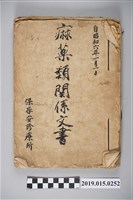 自昭和六年一月一日
麻藥類關係文書
保安診療所
2019.015.0252